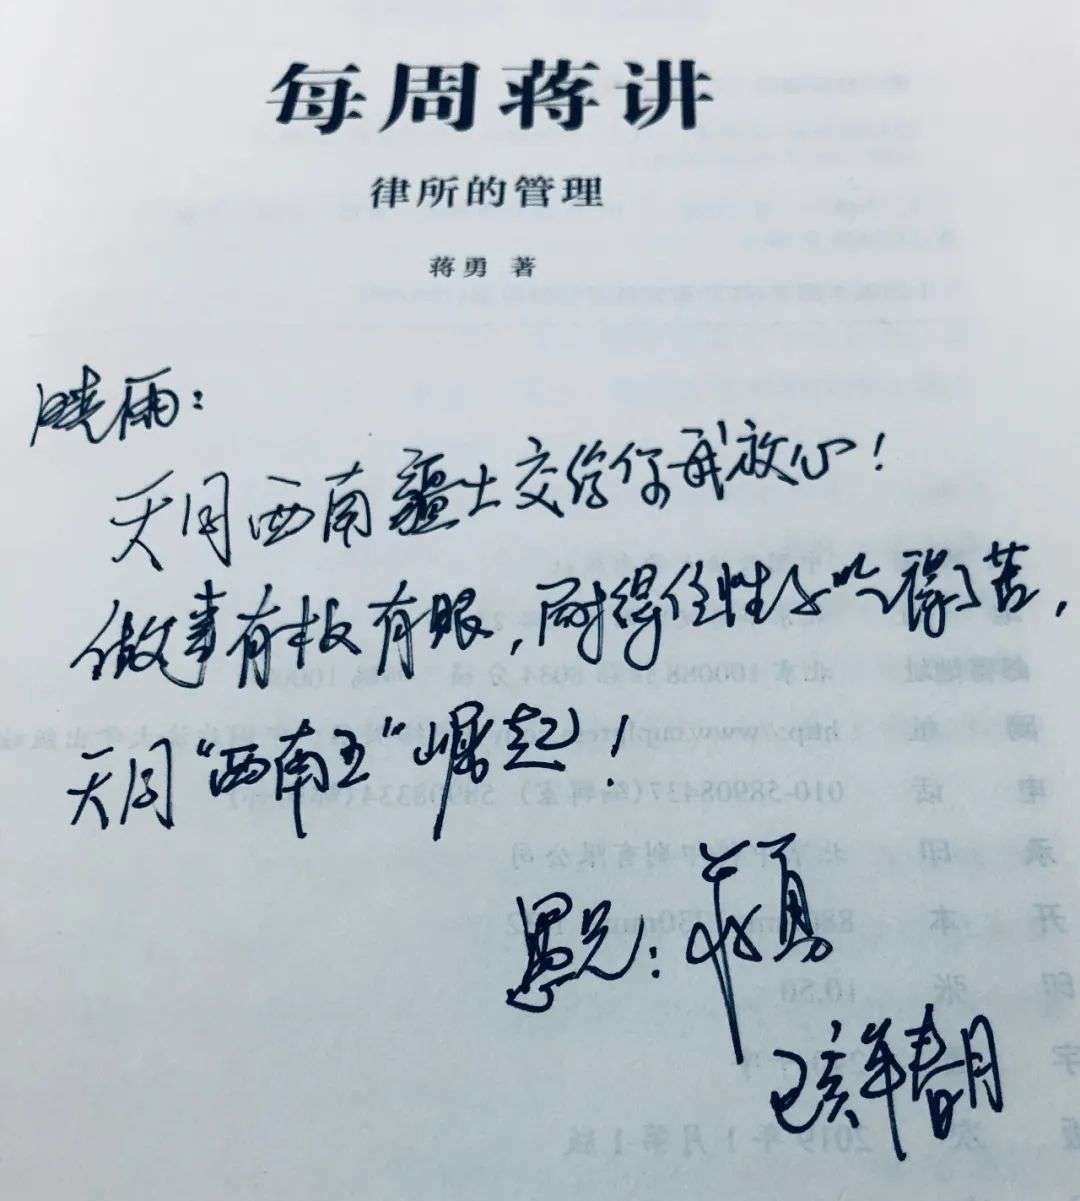 每周蒋讲
律所的管理
蒋勇 著
晓雨：
天同西南疆土交给你我放心！
做事有板有眼，耐得住性子吃得了苦，
天同“西南王”崛起！
愚兄：蒋勇
己亥年春月